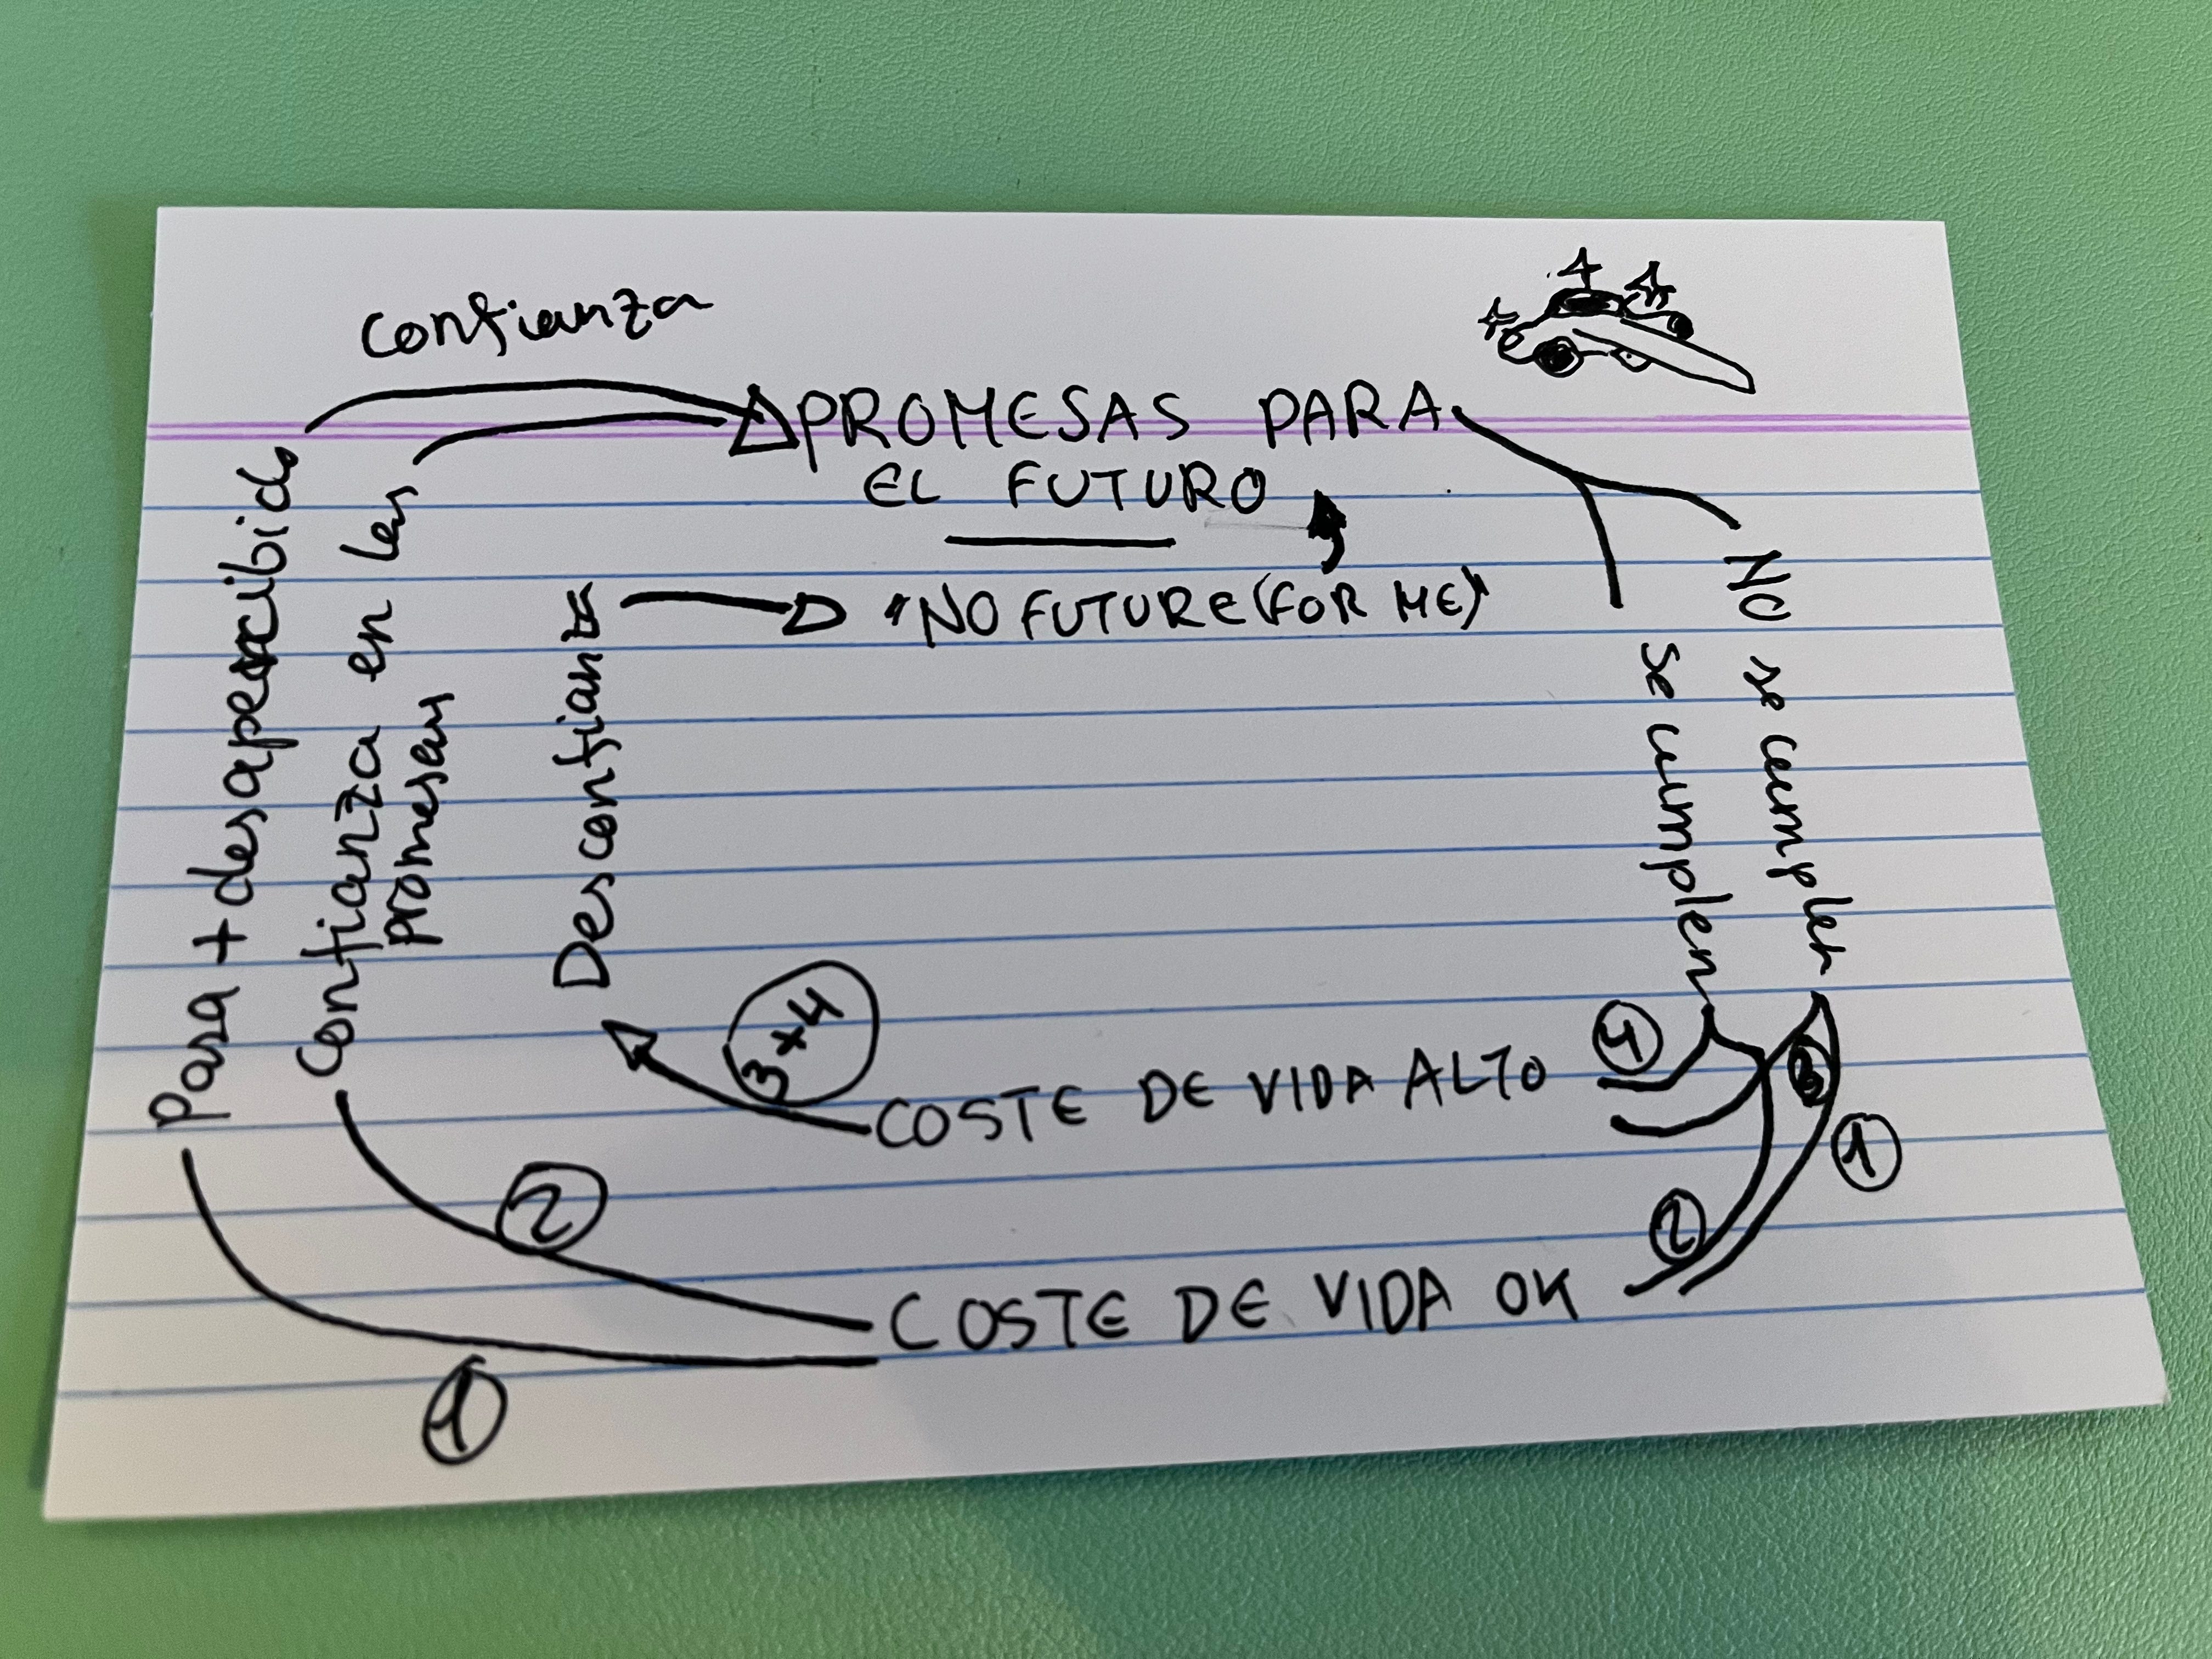 confianza
PROMESAS PARA
EL FUTURO
"NO FUTURE (FOR ME)"
Pasa + desapercibido
Confianza en las
promesas
Desconfianza
se cumplen
NO se cumplen
3+4
COSTE DE VIDA ALTO
4
3
1
2
2
COSTE DE VIDA OK
1